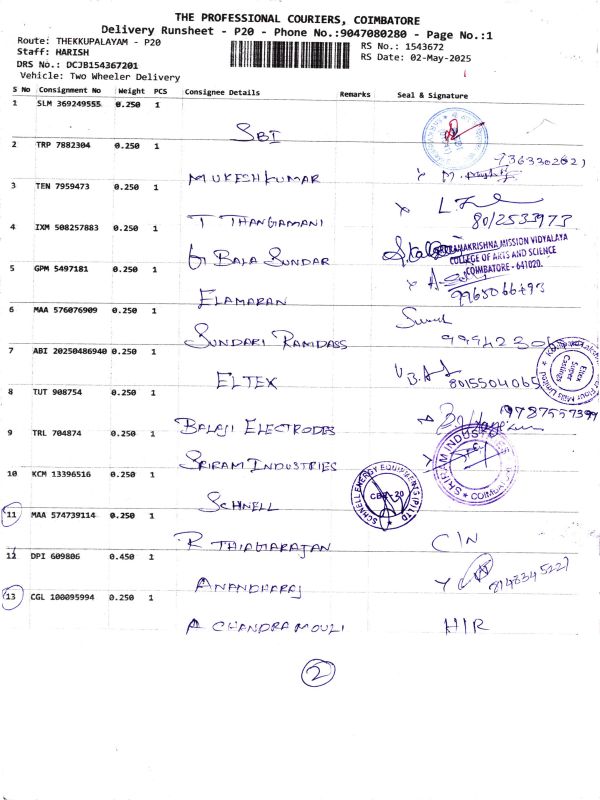 THE PROFESSIONAL COURIERS, COIMBATORE
Delivery Runsheet - P20 - Phone No.:9047080280 - Page No.:1
Route: THEKKUPALAYAM - P20
Staff: HARISH
DRS No.: DCJB154367201
Vehicle: Two Wheeler Delivery
RS No.: 1543672
RS Date: 02-May-2025
S No Consignment No Weight PCS Consignee Details Remarks Seal & Signature
1 SLM 369249555 0.250 1
SBI
2 TRP 7882304 0.250 1
MUKESHKUMAR
3 TEN 7959473 0.250 1
T THANGAMANI
4 IXM 508257883 0.250 1
G BALA SUNDAR
SRI RAMAKRISHNA MISSION VIDYALAYA
COLLEGE OF ARTS AND SCIENCE
COIMBATORE - 641020.
5 GPM 5497181 0.250 1
ELAMARAN
6 MAA 576076909 0.250 1
SUNDARI RAMDASS
7 ABI 20250486940 0.250 1
ELTEX 8015504065
Eltex Super Castings
8 TUT 908754 0.250 1
BALAJI ELECTRODES 9787557399
9 TRL 704874 0.250 1
SRIRAM INDUSTRIES
SRIRAM INDUSTRIES * COIMBATORE
10 KCM 13396516 0.250 1
SCHNELL
SCHNELL ENERGY EQUIPMENTS (P) LTD
CBE - 20
11 MAA 574739114 0.250 1
R THIAGARAJAN C/N
12 DPI 609806 0.450 1
ANANDHARAJ
13 CGL 100095994 0.250 1
A CHANDRAMOULI H/R
2